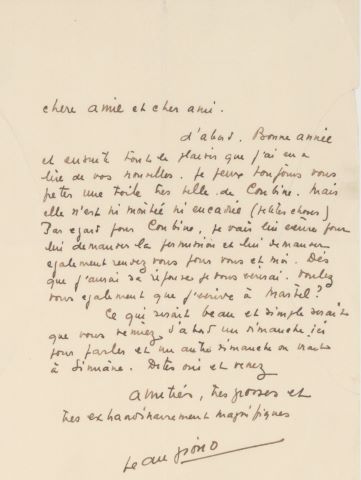 chere amie et cher ami.
d'abord. Bonne année
et ensuite tout le plaisir que j'ai eu a
lire de vos nouvelles. Je peux toujours vous
preter une toile tres belle de Coutine. Mais
elle n'est ni montée ni encadrée (petites choses)
Par egard pour Coutine, je vais lui ecrire pour
lui demander la permission et lui demander
egalement rendez vous pour vous et moi. Dès
que j'aurai sa réponse je vous ecrirai. voulez
vous egalement que j'ecrive à Martel?
Ce qui serait beau et simple serait
que vous veniez d'abord un dimanche ici
pour parler et un autre dimanche on irait
à Simiane. Dites oui et venez
amitiés, tres grosses et
tres extraordinairement magnifiques
Jean Giono